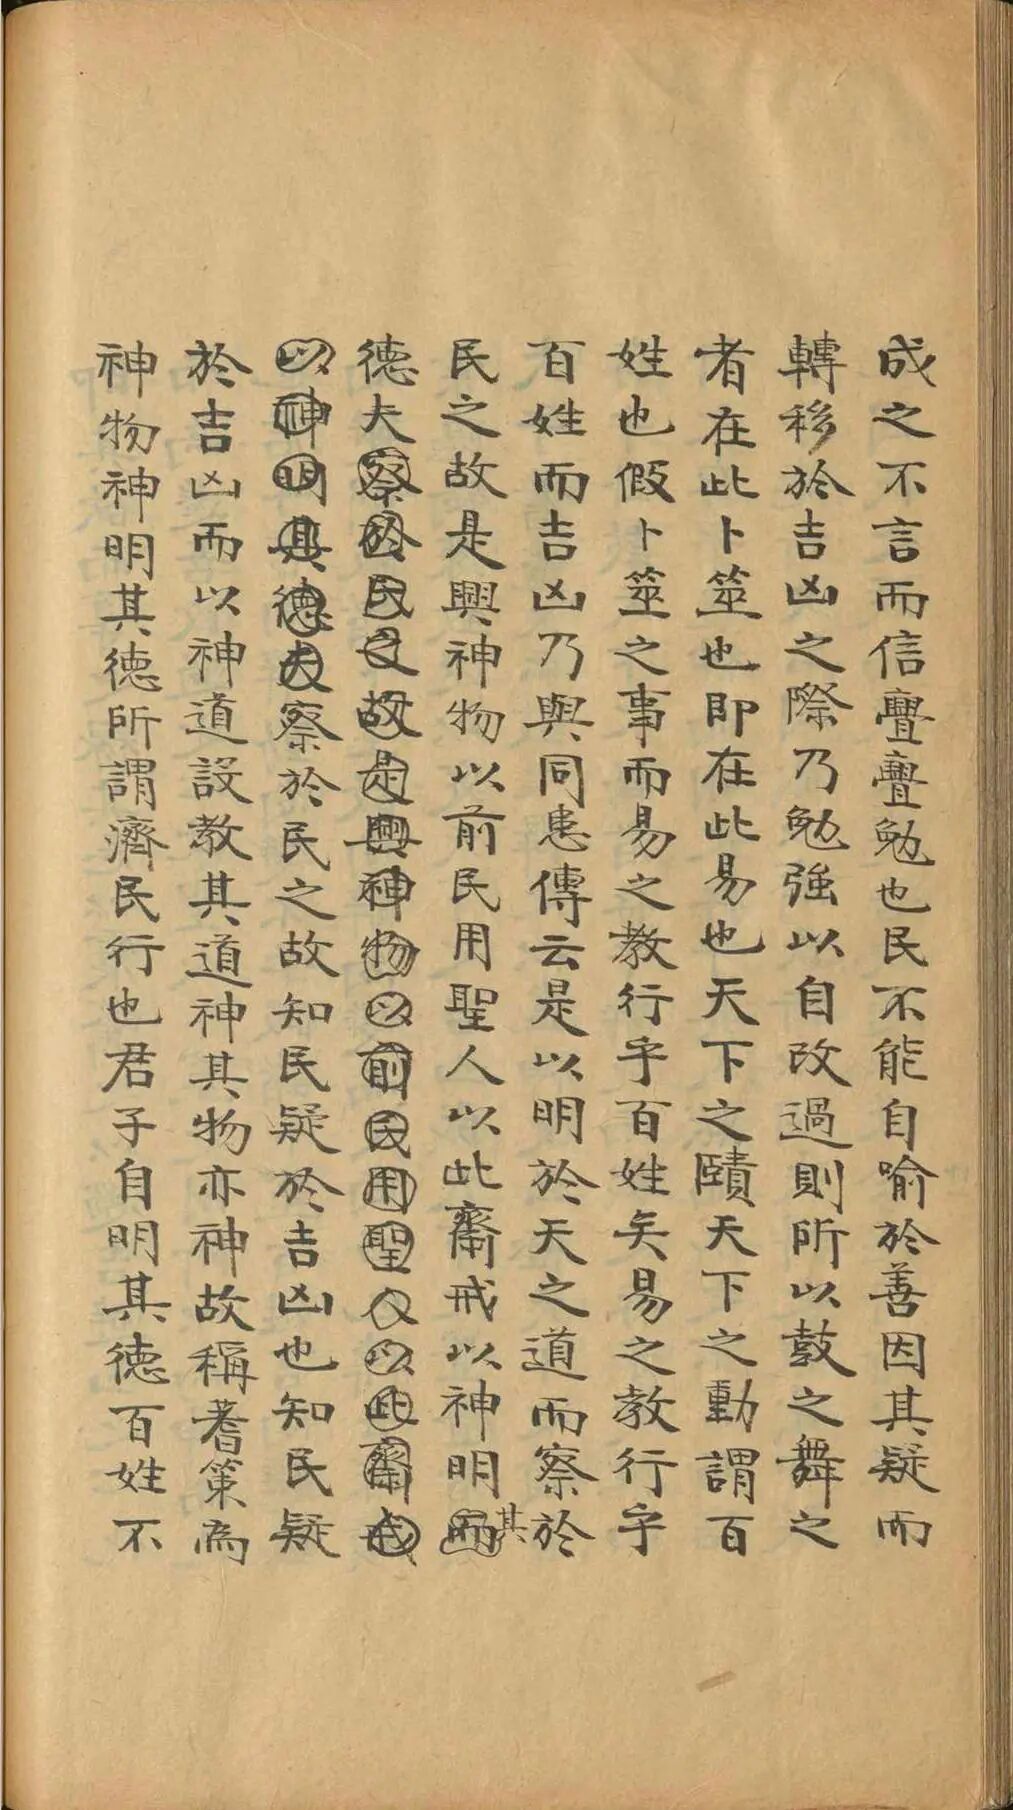 成之不言而信亹亹勉也民不能自喻於善因其疑而
轉移於吉凶之際乃勉強以自改過則所以鼓之舞之
者在此卜筮也即在此易也天下之賾天下之動謂百
姓也假卜筮之事而易之教行乎百姓矣易之教行乎
百姓而吉凶乃與同患傳云是以明於天之道而察於
民之故是興神物以前民用聖人以此齋戒以神明而其
德夫察於民之故是興神物以前民用聖人以此齋戒
以神明其德夫察於民之故知民疑於吉凶也知民疑
於吉凶而以神道設教其道神其物亦神故稱蓍策為
神物神明其德所謂濟民行也君子自明其德百姓不